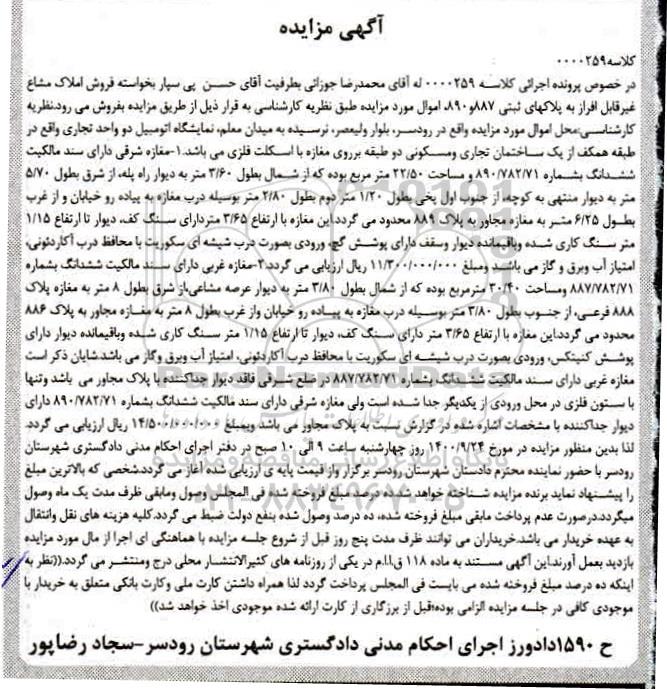 آگهی مزایده
کلاسه ۰۰۰۰۲۵۹
در خصوص پرونده اجرائی کلاسه ۰۰۰۰۲۵۹ له آقای محمدرضا جوزائی بطرفیت آقای حسن پی سپار بخواسته فروش املاک مشاع
غیرقابل افراز به پلاکهای ثبتی ۸۸۷و۸۹۰، اموال مورد مزایده طبق نظریه کارشناسی به قرار ذیل از طریق مزایده بفروش می رود.نظریه
کارشناسی:محل اموال مورد مزایده واقع در رودسر، بلوار ولیعصر، نرسیده به میدان معلم، نمایشگاه اتومبیل دو واحد تجاری واقع در
طبقه همکف از یک ساختمان تجاری ومسکونی دو طبقه برروی مغازه با اسکلت فلزی می باشد.۱-مغازه شرقی دارای سند مالکیت
ششدانگ بشماره ۸۹۰/۷۸۲/۷۱ و مساحت ۲۲/۵۰ متر مربع بوده که از شمال بطول ۳/۶۰ متر به دیوار راه پله، از شرق بطول ۵/۷۰
متر به دیوار منتهی به کوچه، از جنوب اول پخی بطول ۱/۲۰ متر دوم بطول ۲/۸۰ متر بوسیله درب مغازه به پیاده رو خیابان و از غرب
بطول ۶/۲۵ متر به مغازه مجاور به پلاک ۸۸۹ محدود می گردد.این مغازه با ارتفاع ۳/۶۵ متردارای سنگ کف، دیوار تا ارتفاع ۱/۱۵
متر سنگ کاری شده وباقیمانده دیوار وسقف دارای پوشش گچ، ورودی بصورت درب شیشه ای سکوریت با محافظ درب آکاردئونی،
امتیاز آب وبرق و گاز می باشد ومبلغ ۱۱/۳۰۰/۰۰۰/۰۰۰ ریال ارزیابی می گردد.۲-مغازه غربی دارای سند مالکیت ششدانگ بشماره
۸۸۷/۷۸۲/۷۱ ومساحت ۳۰/۴۰ مترمربع بوده که از شمال بطول ۳/۸۰ متر به دیوار عرصه مشاعی،از شرق بطول ۸ متر به مغازه پلاک
۸۸۸ فرعی، از جنوب بطول ۳/۸۰ متر بوسیله درب مغازه به پیاده رو خیابان واز غرب بطول ۸ متر به مغازه مجاور به پلاک ۸۸۶
محدود می گردد.این مغازه با ارتفاع ۳/۶۵ متر دارای سنگ کف، دیوار تا ارتفاع ۱/۱۵ متر سنگ کاری شده وباقیمانده دیوار دارای
پوشش کنیتکس، ورودی بصورت درب شیشه ای سکوریت با محافظ درب آکاردئونی، امتیاز آب وبرق وگاز می باشد.شایان ذکر است
مغازه غربی دارای سند مالکیت ششدانگ بشماره ۸۸۷/۷۸۲/۷۱ در ضلع شرقی فاقد دیوار جداکننده با پلاک مجاور می باشد وتنها
با ستون فلزی در محل ورودی از یکدیگر جدا شده است ولی مغازه شرقی دارای سند مالکیت ششدانگ بشماره ۸۹۰/۷۸۲/۷۱ دارای
دیوار جداکننده با مشخصات اشاره شده در گزارش نسبت به پلاک مجاور می باشد وبمبلغ ۱۴/۵۰۰/۰۰۰/۰۰۰ ریال ارزیابی می گردد.
لذا بدین منظور مزایده در مورخ ۱۴۰۰/۹/۲۴ روز چهارشنبه ساعت ۹ الی ۱۰ صبح در دفتر اجرای احکام مدنی دادگستری شهرستان
رودسر با حضور نماینده محترم دادستان شهرستان رودسر برگزار واز قیمت پایه ی ارزیابی شده آغاز می گردد.شخصی که بالاترین مبلغ
را پیشنهاد نماید برنده مزایده شناخته خواهد شد.ده درصد مبلغ فروخته شده فی المجلس وصول ومابقی ظرف مدت یک ماه وصول
میگردد.درصورت عدم پرداخت مابقی مبلغ فروخته شده، ده درصد وصول شده بنفع دولت ضبط می گردد.کلیه هزینه های نقل وانتقال
به عهده خریدار می باشد.خریداران می توانند ظرف مدت پنج روز قبل از شروع جلسه مزایده با هماهنگی ای اجرا از مال مورد مزایده
بازدید بعمل آورند.این آگهی مستند به ماده ۱۱۸ ق.ا.ا.م در یکی از روزنامه های کثیرالانتشار محلی درج ومنتشر می گردد.((نظر به
اینکه ده درصد مبلغ فروخته شده می بایست فی المجلس پرداخت گردد لذا همراه داشتن کارت ملی وکارت بانکی متعلق به خریدار با
موجودی کافی در جلسه مزایده الزامی بوده؛قبل از برزگاری از کارت ارائه شده موجودی اخذ خواهد شد))
ح ۱۵۹۰دادورز اجرای احکام مدنی دادگستری شهرستان رودسر-سجاد رضاپور